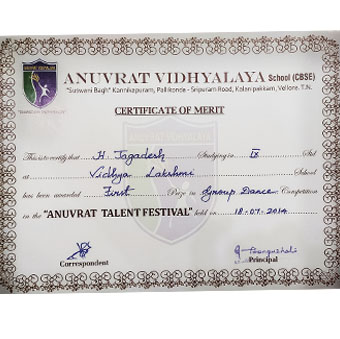 ANUVRAT VIDHYALAYA School (CBSE)
"Sunweni Bagh" Kannikapuram, Pallikonda - Sripuram Road, Kalanipakkam, Vellore. T.N.
CERTIFICATE OF MERIT
ANUVRAT VIDHYALAYA
This is to certify that H. Jagadesh Studying in IX Std
at Vidhya Lakshmi School
has been awarded First Prize in Group Dance Competition
in the "ANUVRAT TALENT FESTIVAL" held on 18.07.2014
Correspondent
Principal